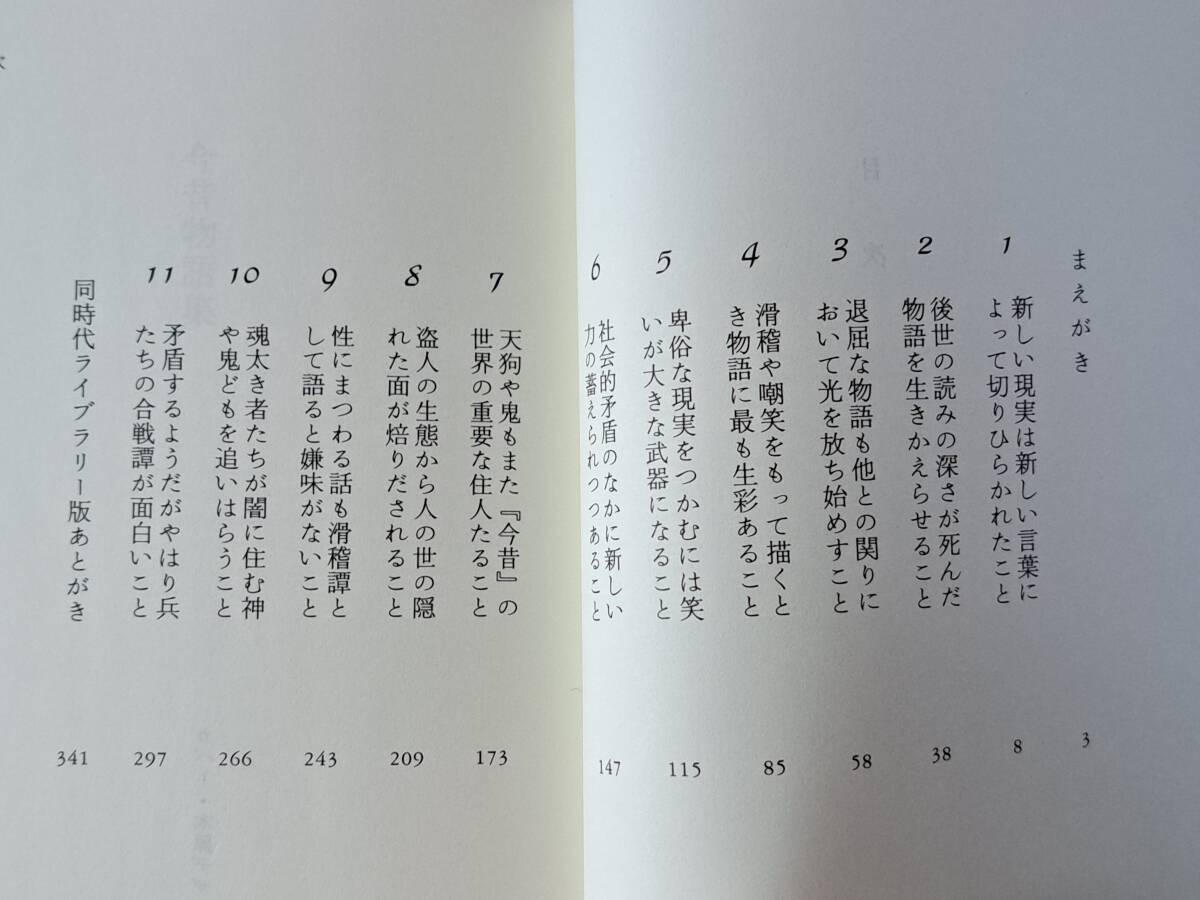 まえがき
3
1
新しい現実は新しい言葉に
よって切りひらかれたこと
8
2
後世の読みの深さが死んだ
物語を生きかえらせること
38
3
退屈な物語も他との関りに
おいて光を放ち始めすこと
58
4
滑稽や嘲笑をもって描くと
き物語に最も生彩あること
85
5
卑俗な現実をつかむには笑
いが大きな武器になること
115
6
社会的矛盾のなかに新しい
力の蓄えられつつあること
147
7
天狗や鬼もまた『今昔』の
世界の重要な住人たること
173
8
盗人の生態から人の世の隠
れた面が焙りだされること
209
9
性にまつわる話も滑稽譚と
して語ると嫌味がないこと
243
10
魂太き者たちが闇に住む神
や鬼どもを追いはらうこと
266
11
矛盾するようだがやはり兵
たちの合戦譚が面白いこと
297
同時代ライブラリー版あとがき
341
目次
今昔物語集